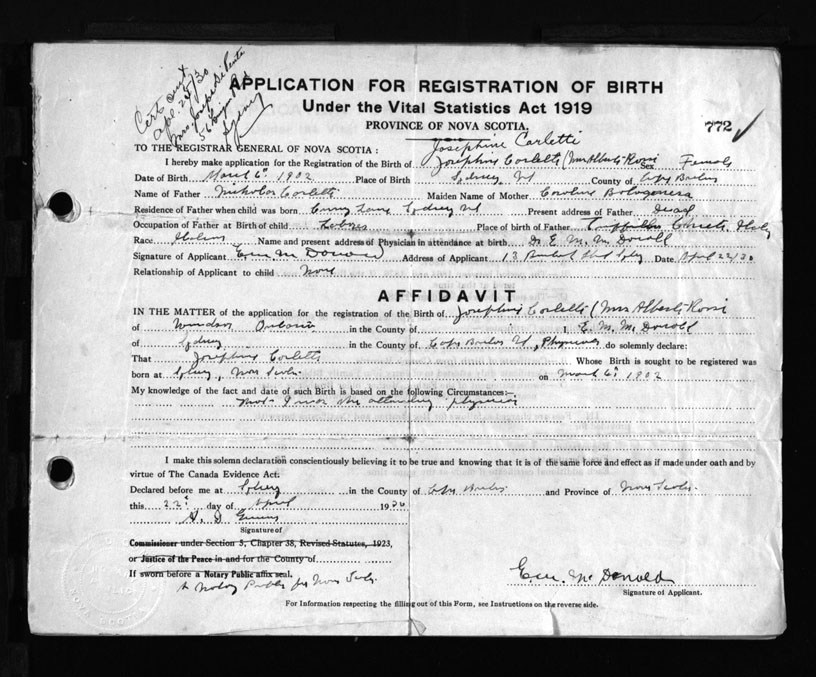 Cert out
Apl 25/30
Mrs Joseph
Sydney
APPLICATION FOR REGISTRATION OF BIRTH
Under the Vital Statistics Act 1919
PROVINCE OF NOVA SCOTIA.
772 ✓
Josephine Carletti
TO THE REGISTRAR GENERAL OF NOVA SCOTIA :
I hereby make application for the Registration of the Birth of Josephine Corletti (Mrs Alberti Rossi Sex Female
Date of Birth March 6" 1902 Place of Birth Sydney, County of Cape Breton
Name of Father Nicholas Corletti Maiden Name of Mother Caroline
Residence of Father when child was born Lane Sydney Present address of Father Dead
Occupation of Father at Birth of child Laborer Place of birth of Father Italy
Race Italian Name and present address of Physician in attendance at birth Dr. E. M. McDonald
Signature of Applicant E M McDonald Address of Applicant 13 Sydney Date April 22/30
Relationship of Applicant to child None
AFFIDAVIT
IN THE MATTER of the application for the registration of the Birth of Josephine Corletti (Mrs Alberti Rossi
of Windsor Ontario in the County of I, E. M. McDonald
of Sydney in the County of Cape Breton Physician do solemnly declare:
That Josephine Corletti Whose Birth is sought to be registered was
born at Sydney, Nova Scotia on March 6" 1902
My knowledge of the fact and date of such Birth is based on the following Circumstances:—
That I was the attending physician
I make this solemn declaration conscientiously believing it to be true and knowing that it is of the same force and effect as if made under oath and by
virtue of The Canada Evidence Act:
Declared before me at Sydney in the County of Cape Breton and Province of Nova Scotia
this 22" day of April 1930
Signature of
Commissioner under Section 5, Chapter 38, Revised Statutes, 1923,
or Justice of the Peace in and for the County of
If sworn before a Notary Public affix seal.
A Notary Public for Nova Scotia
E. M. McDonald
Signature of Applicant.
For Information respecting the filling out of this Form, see Instructions on the reverse side.